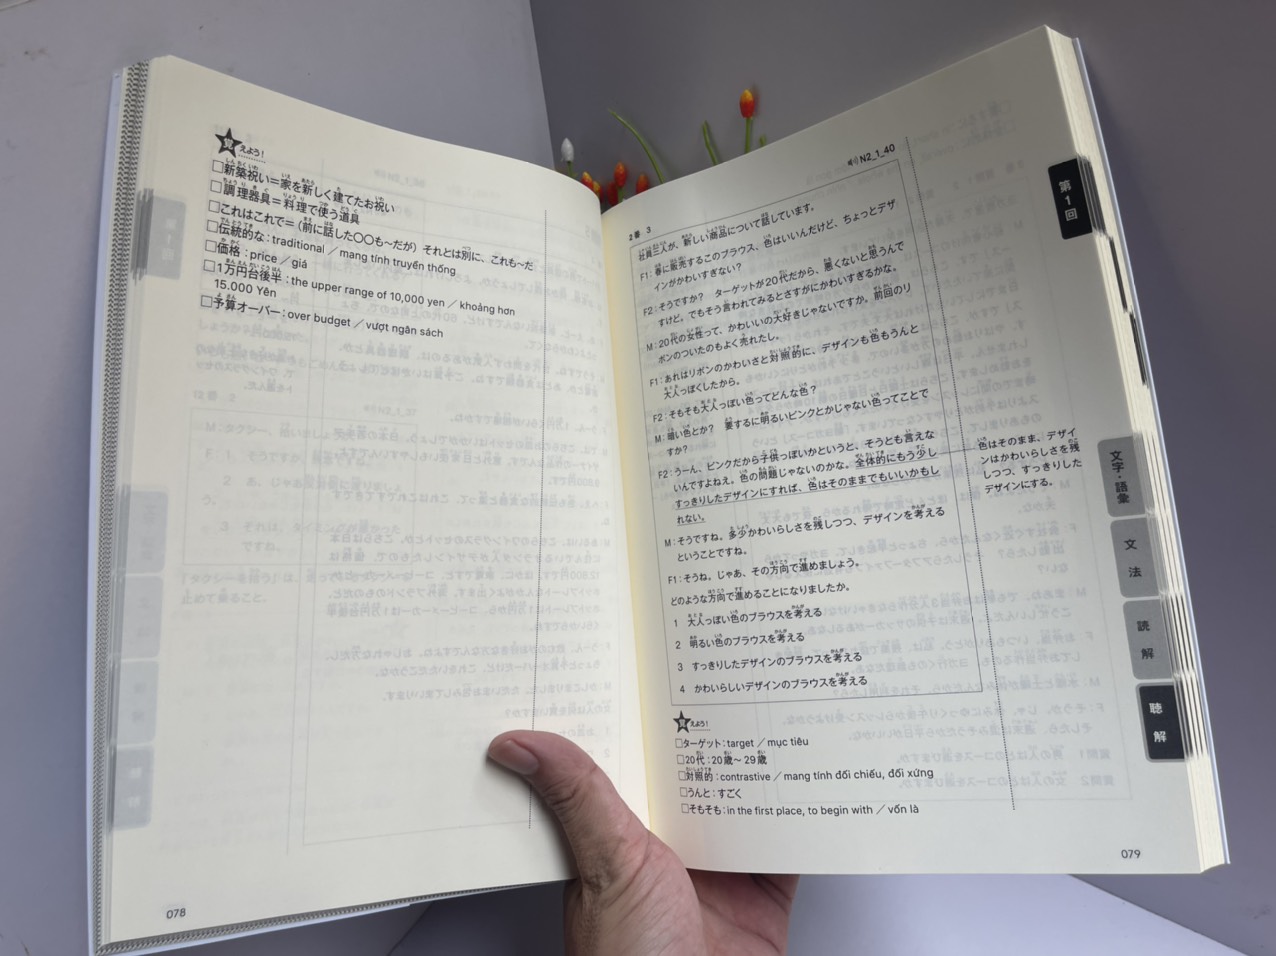 覚えよう！
□新築祝い＝家を新しく建てたお祝い
□調理器具＝料理で使う道具
□これはこれで＝（前に話した〇〇も～だが）それとは別に、これも～だ
□伝統的な：traditional／mang tính truyền thống
□価格：price／giá
□1万円台後半：the upper range of 10,000 yen／khoảng hơn
15.000 Yên
□予算オーバー：over budget／vượt ngân sách
078
N2_1_40
2番 3
社員三人が、新しい商品について話しています。
F1：春に販売するこのブラウス、色はいいんだけど、ちょっとデザ
インがかわいすぎない？
F2：そうですか？ ターゲットが20代だから、悪くないと思うんで
すけど。でもそう言われてみるとさすがにかわいすぎるかな。
M：20代の女性って、かわいいの大好きじゃないですか。前回のリ
ボンのついたのもよく売れたし。
F1：あれはリボンのかわいさと対照的に、デザインも色もうんと
大人っぽくしたから。
F2：そもそも大人っぽい色ってどんな色？
M：暗い色とか？ 要するに明るいピンクとかじゃない色ってことで
すか？
F2：うーん、ピンクだから子供っぽいかというと、そうとも言えな
いんですよねえ。色の問題じゃないのかな。全体的にもう少し
すっきりしたデザインにすれば、色はそのままでもいいかもし
れない。
M：そうですね。多少かわいらしさを残しつつ、デザインを考える
ということですね。
F1：そうね。じゃあ、その方向で進めましょう。
どのような方向で進めることになりましたか。
1 大人っぽい色のブラウスを考える
2 明るい色のブラウスを考える
3 すっきりしたデザインのブラウスを考える
4 かわいらしいデザインのブラウスを考える
色はそのまま、デザイ
ンはかわいらしさを残
しつつ、すっきりした
デザインにする。
覚えよう！
□ターゲット：target／mục tiêu
□20代：20歳～29歳
□対照的：contrastive／mang tính đối chiếu, đối xứng
□うんと：すごく
□そもそも：in the first place, to begin with／vốn là
第1回
文字・語彙
文法
読解
聴解
079